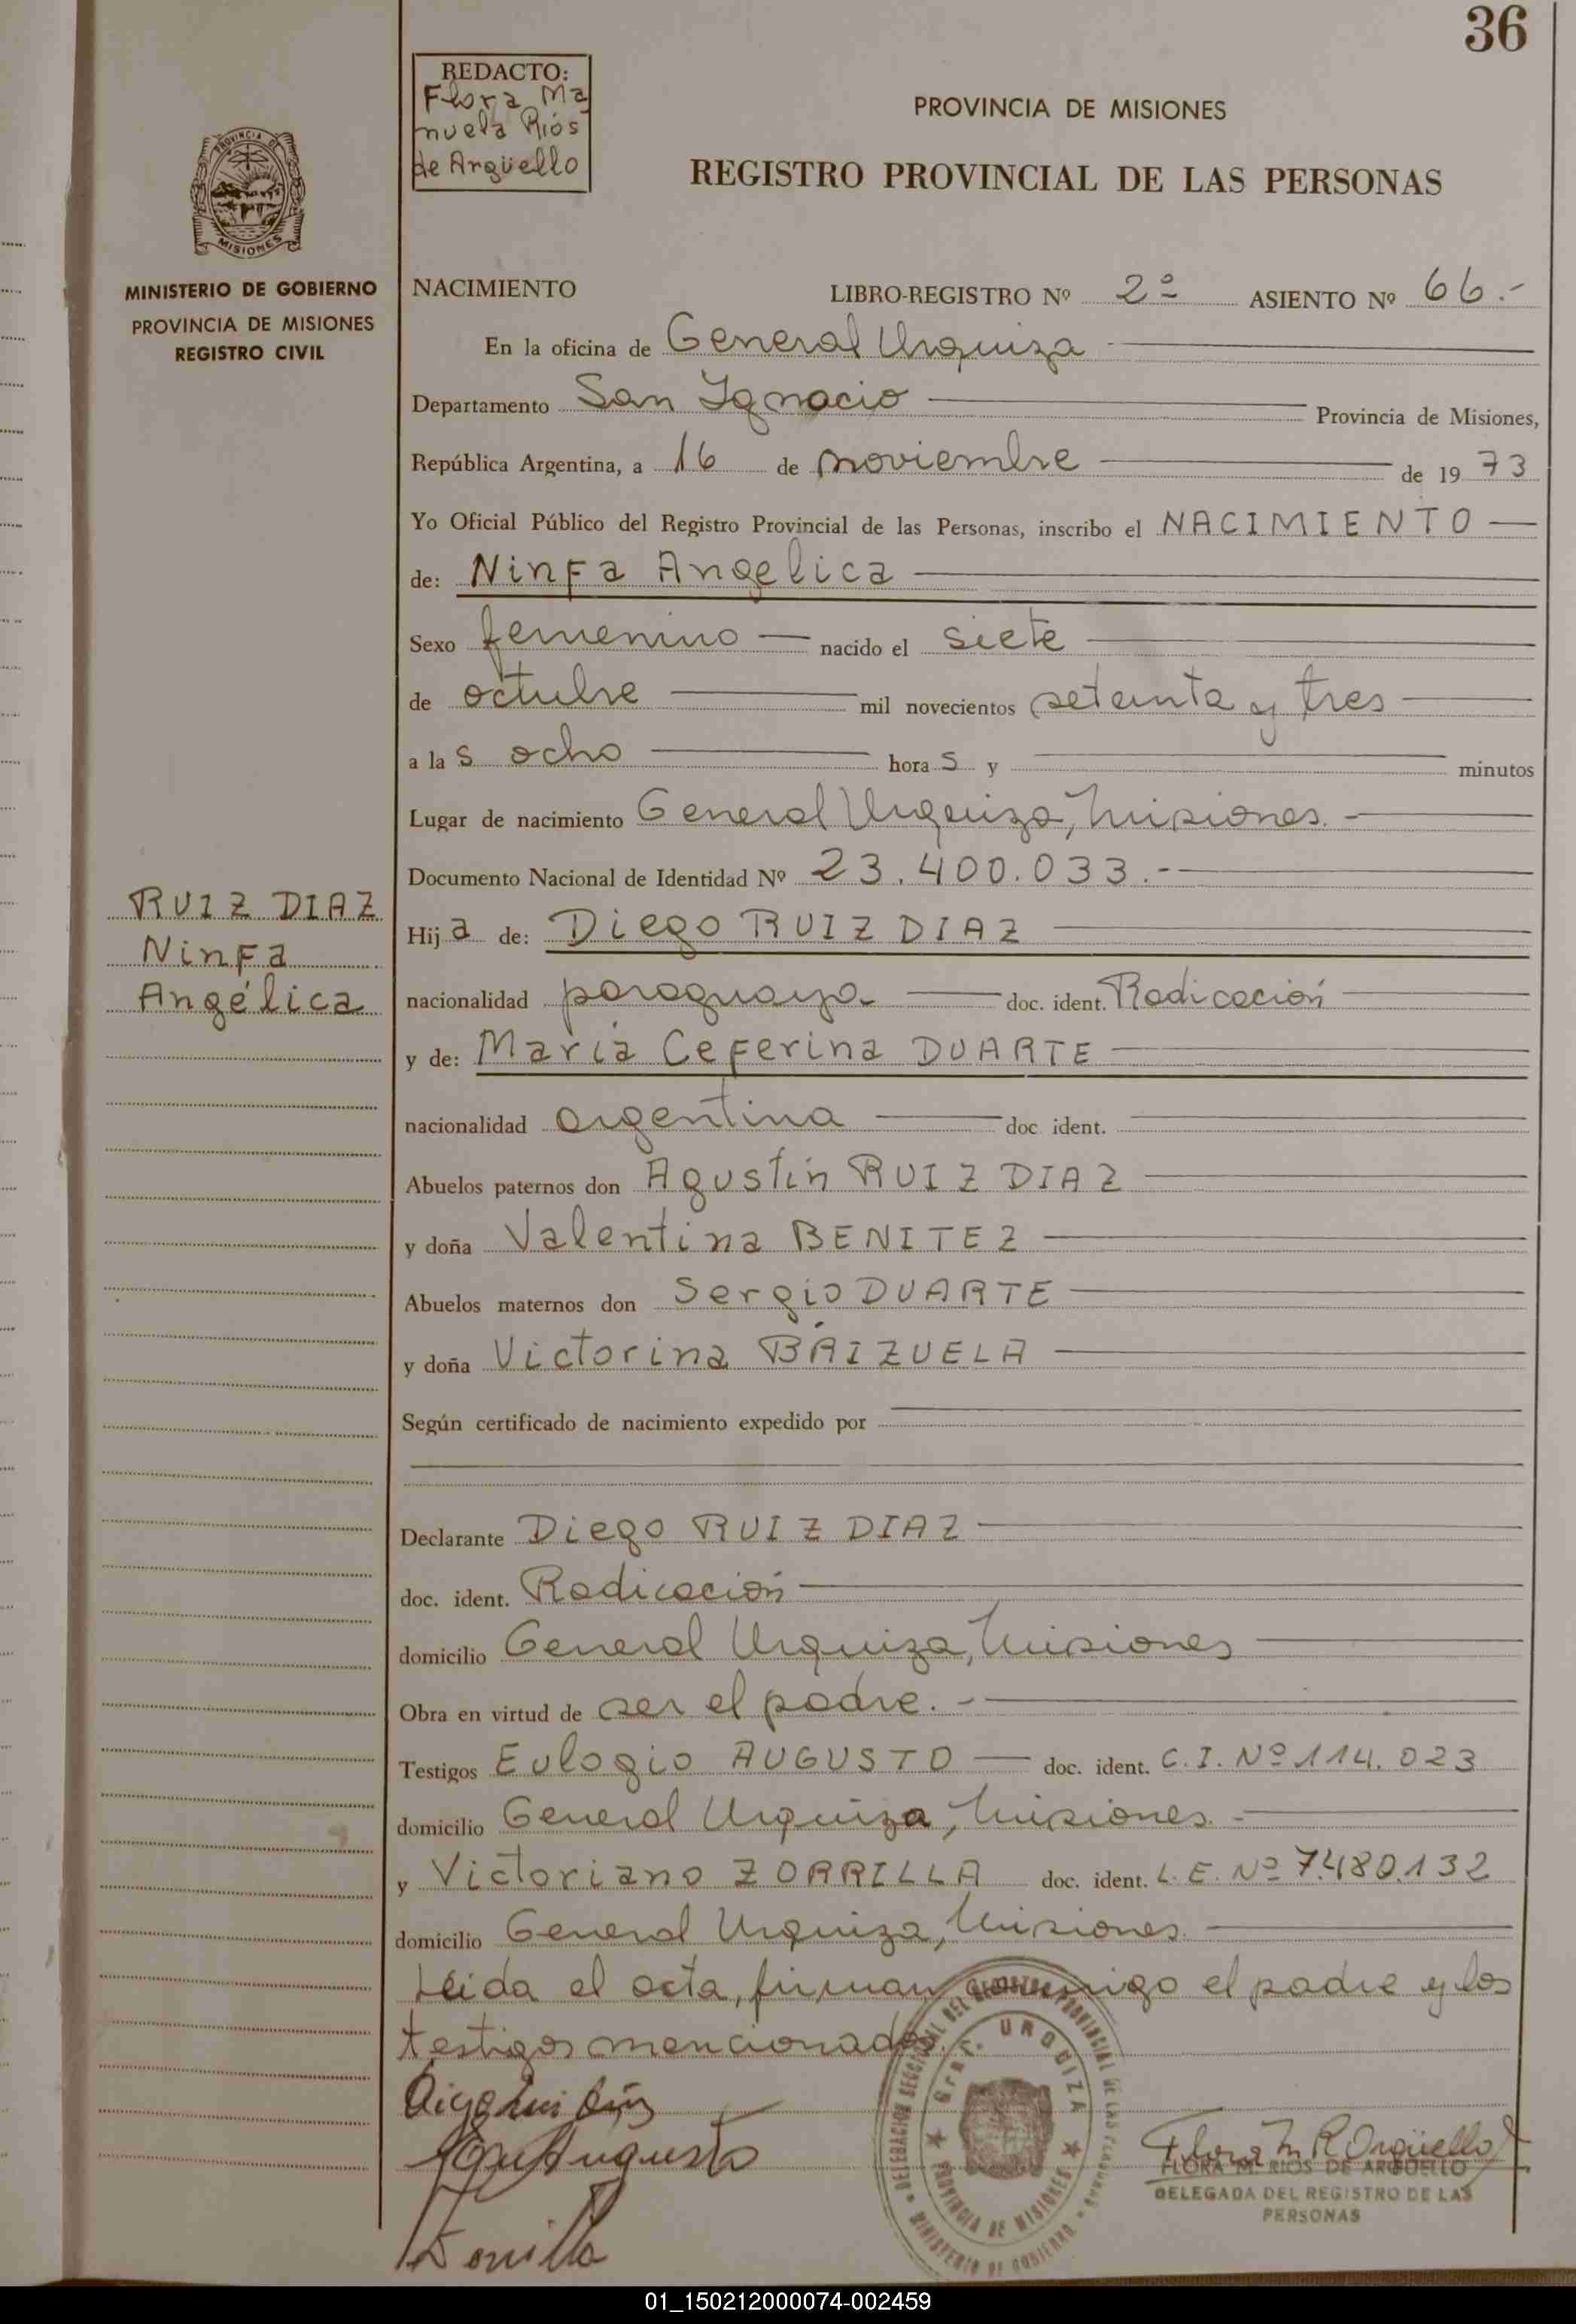 36
REDACTO:
Flora Ma
nuela Ríos
de Argüello
PROVINCIA DE MISIONES
REGISTRO PROVINCIAL DE LAS PERSONAS
PROVINCIA DE
MISIONES
MINISTERIO DE GOBIERNO
PROVINCIA DE MISIONES
REGISTRO CIVIL
NACIMIENTO LIBRO-REGISTRO Nº 2º ASIENTO Nº 66.-
En la oficina de General Urquiza
Departamento San Ignacio Provincia de Misiones,
República Argentina, a 16 de noviembre de 1973
Yo Oficial Público del Registro Provincial de las Personas, inscribo el NACIMIENTO
de: Ninfa Angelica
Sexo femenino nacido el siete
de octubre mil novecientos setenta y tres
a las ocho horas y minutos
Lugar de nacimiento General Urquiza, Misiones.-
Documento Nacional de Identidad Nº 23.400.033.-
RUIZ DIAZ
Ninfa
Angélica
Hija de: Diego RUIZ DIAZ
nacionalidad paraguaya doc. ident. Radicación
y de: María Ceferina DUARTE
nacionalidad argentina doc. ident.
Abuelos paternos don Agustín RUIZ DIAZ
y doña Valentina BENITEZ
Abuelos maternos don Sergio DUARTE
y doña Victorina BÁIZUELA
Según certificado de nacimiento expedido por
Declarante Diego RUIZ DIAZ
doc. ident. Radicación
domicilio General Urquiza, Misiones
Obra en virtud de ser el padre.-
Testigos Eulogio AUGUSTO doc. ident. C.I. Nº 114.023
domicilio General Urquiza, Misiones.-
y Victoriano ZORRILLA doc. ident. L.E. Nº 7.480.132
domicilio General Urquiza, Misiones.
Leída el acta, firman conmigo el padre y los
testigos mencionados.
DELEGACION SECCIONAL DEL REGISTRO PROVINCIAL DE LAS PERSONAS
MINISTERIO DE GOBIERNO
Gral. URQUIZA
PROVINCIA DE MISIONES
Diego Ruiz Díaz
Augusto
Zorrilla
Flora M R Argüello
FLORA M. RIOS DE ARGÜELLO
DELEGADA DEL REGISTRO DE LAS
PERSONAS
01_150212000074-002459